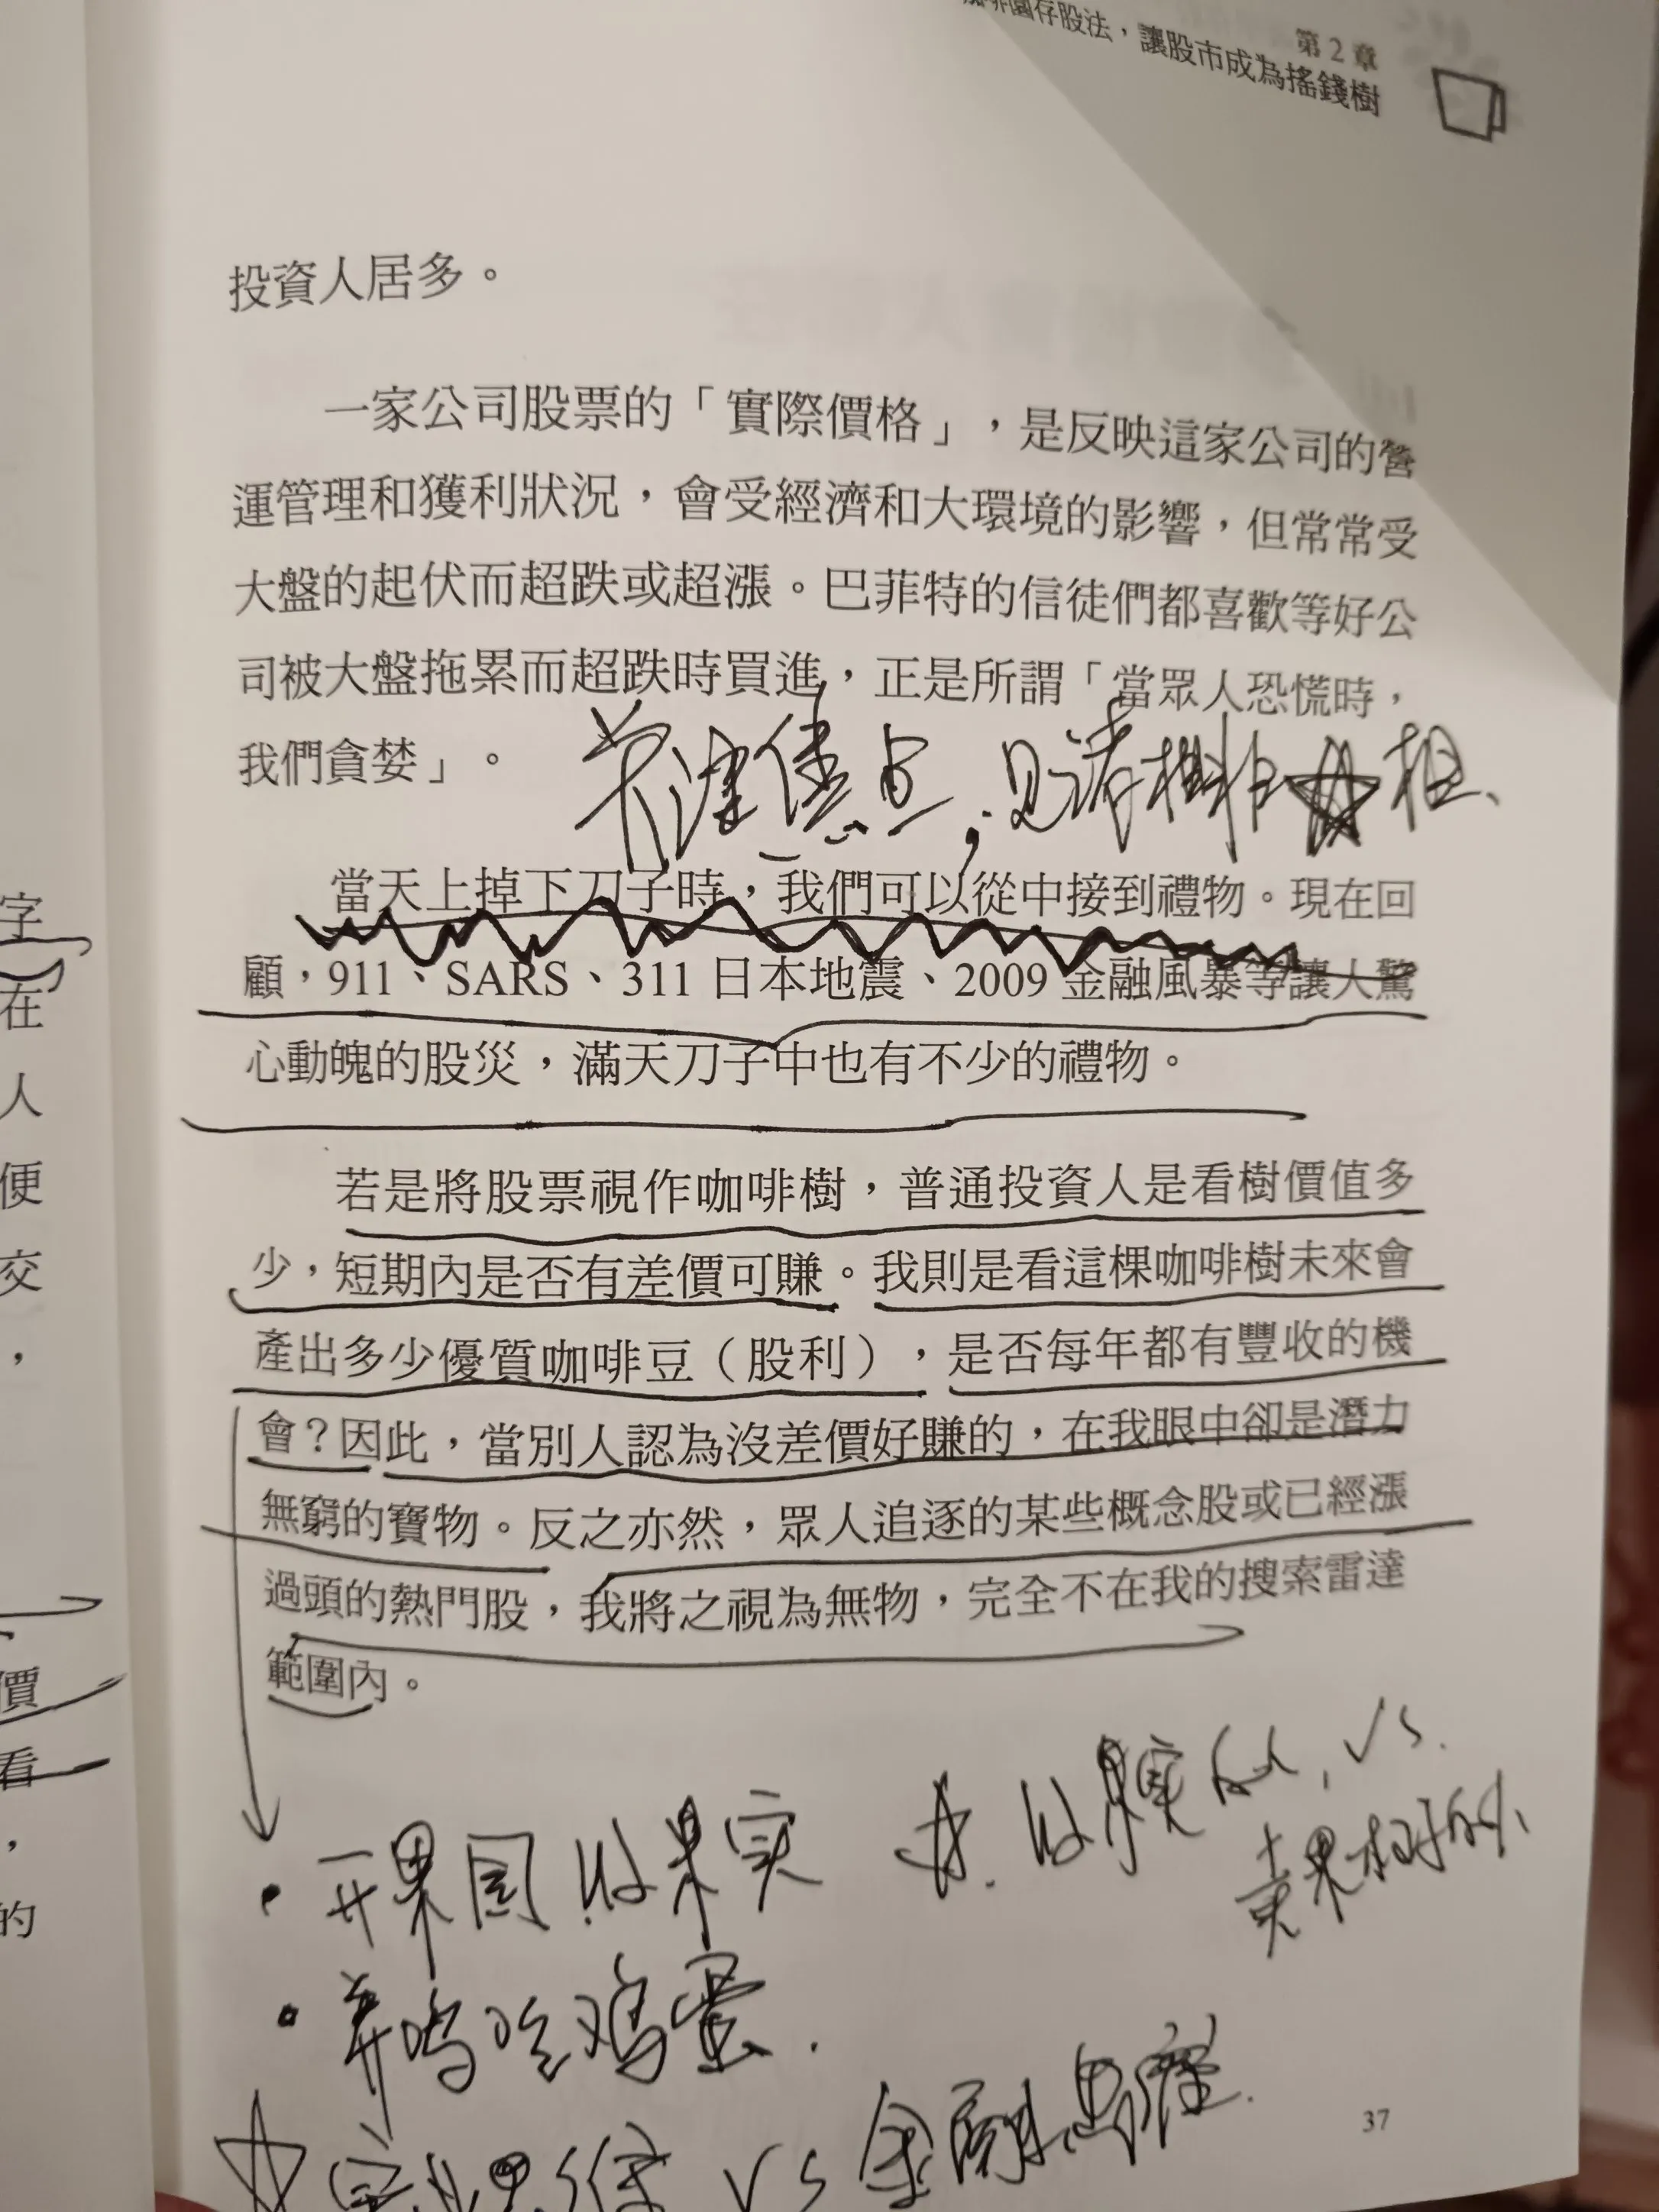 第 2 章
咖啡園存股法，讓股市成為搖錢樹
投資人居多。
一家公司股票的「實際價格」，是反映這家公司的營
運管理和獲利狀況，會受經濟和大環境的影響，但常常受
大盤的起伏而超跌或超漲。巴菲特的信徒們都喜歡等好公
司被大盤拖累而超跌時買進，正是所謂「當眾人恐慌時，
我們貪婪」。
當天上掉下刀子時，我們可以從中接到禮物。現在回
顧，911、SARS、311 日本地震、2009 金融風暴等讓人驚
心動魄的股災，滿天刀子中也有不少的禮物。
若是將股票視作咖啡樹，普通投資人是看樹價值多
少，短期內是否有差價可賺。我則是看這棵咖啡樹未來會
產出多少優質咖啡豆（股利），是否每年都有豐收的機
會？因此，當別人認為沒差價好賺的，在我眼中卻是潛力
無窮的寶物。反之亦然，眾人追逐的某些概念股或已經漲
過頭的熱門股，我將之視為無物，完全不在我的搜索雷達
範圍內。
·开果园收果实 收果实的人 vs.
卖果树的人
·养鸡吃鸡蛋.
vs 金融思维.
37
字
在
人
便
交
，
價
看
，
的